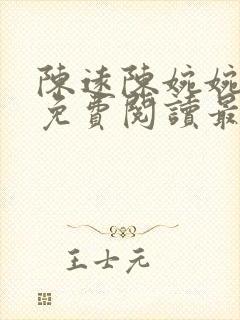 陳遠陳婉婉
免費閱讀最
王士元